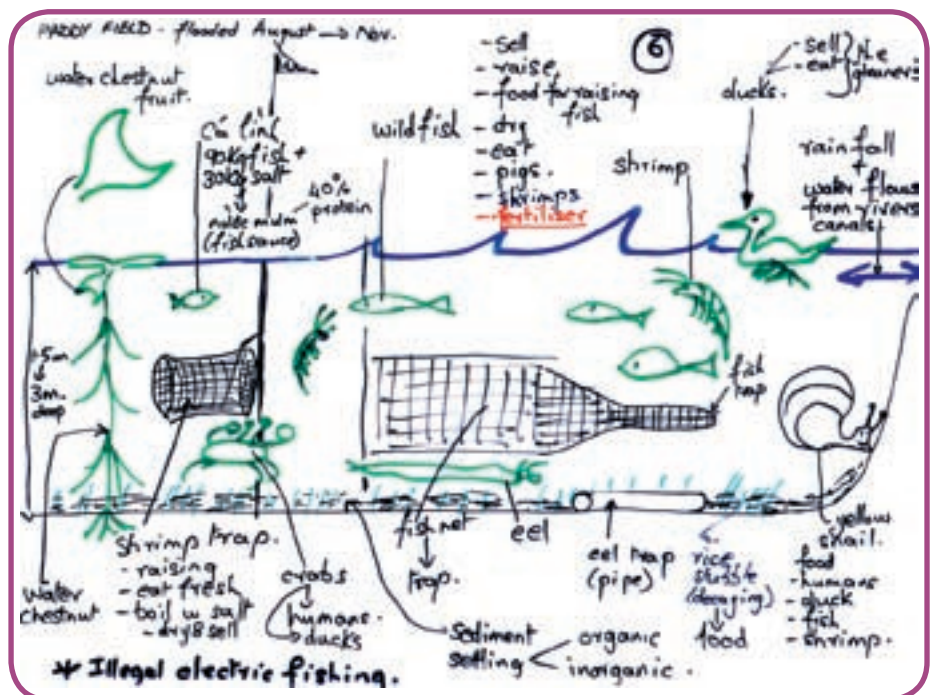 PADDY FIELD - flooded August → Nov.
6
water chestnut
fruit.
Cá linh
90Kg fish +
30Kg salt
40%
protein
(fish sauce)
wild fish
- sell
- raise
- food for raising
fish
- dry
- eat
- pigs.
- shrimps
- fertilizer
shrimp
ducks.
- sell
- eat
the
gleaners
rain fall
+
water flows
from rivers
canals
1.5m
to
3m.
deep
fish
trap
water
chestnut
shrimp trap.
- raising
- eat fresh
- boil w salt
- dry & sell
crabs
humans.
ducks
fish net
trap.
eel
eel trap
(pipe)
sediment
settling
organic
inorganic.
rice
stubble
(decaying)
food
yellow
snail.
food
- humans
- duck
- fish
- shrimp.
* Illegal electric fishing.